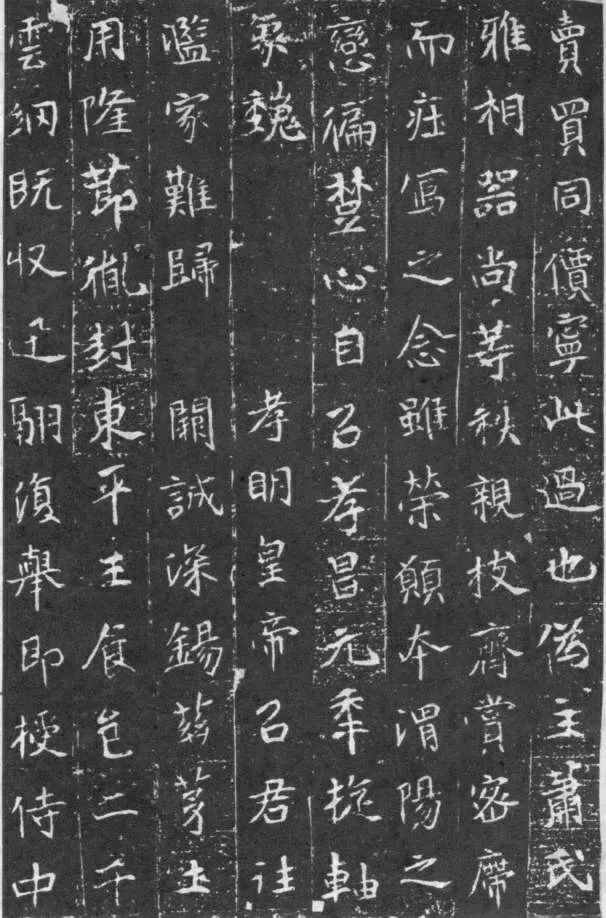 賣買同價寧此過也偽主蕭氏
雅相器尚等秩親枝齊賞密席
而庄舄之念雖榮願本渭陽之
戀偏楚心自以孝昌元年旋軸
象魏 孝明皇帝以君往
濫家難歸 闕誠深錫茲茅土
用隆節胤封東平王食邑二千
雲網既收迅翮復舉即授侍中